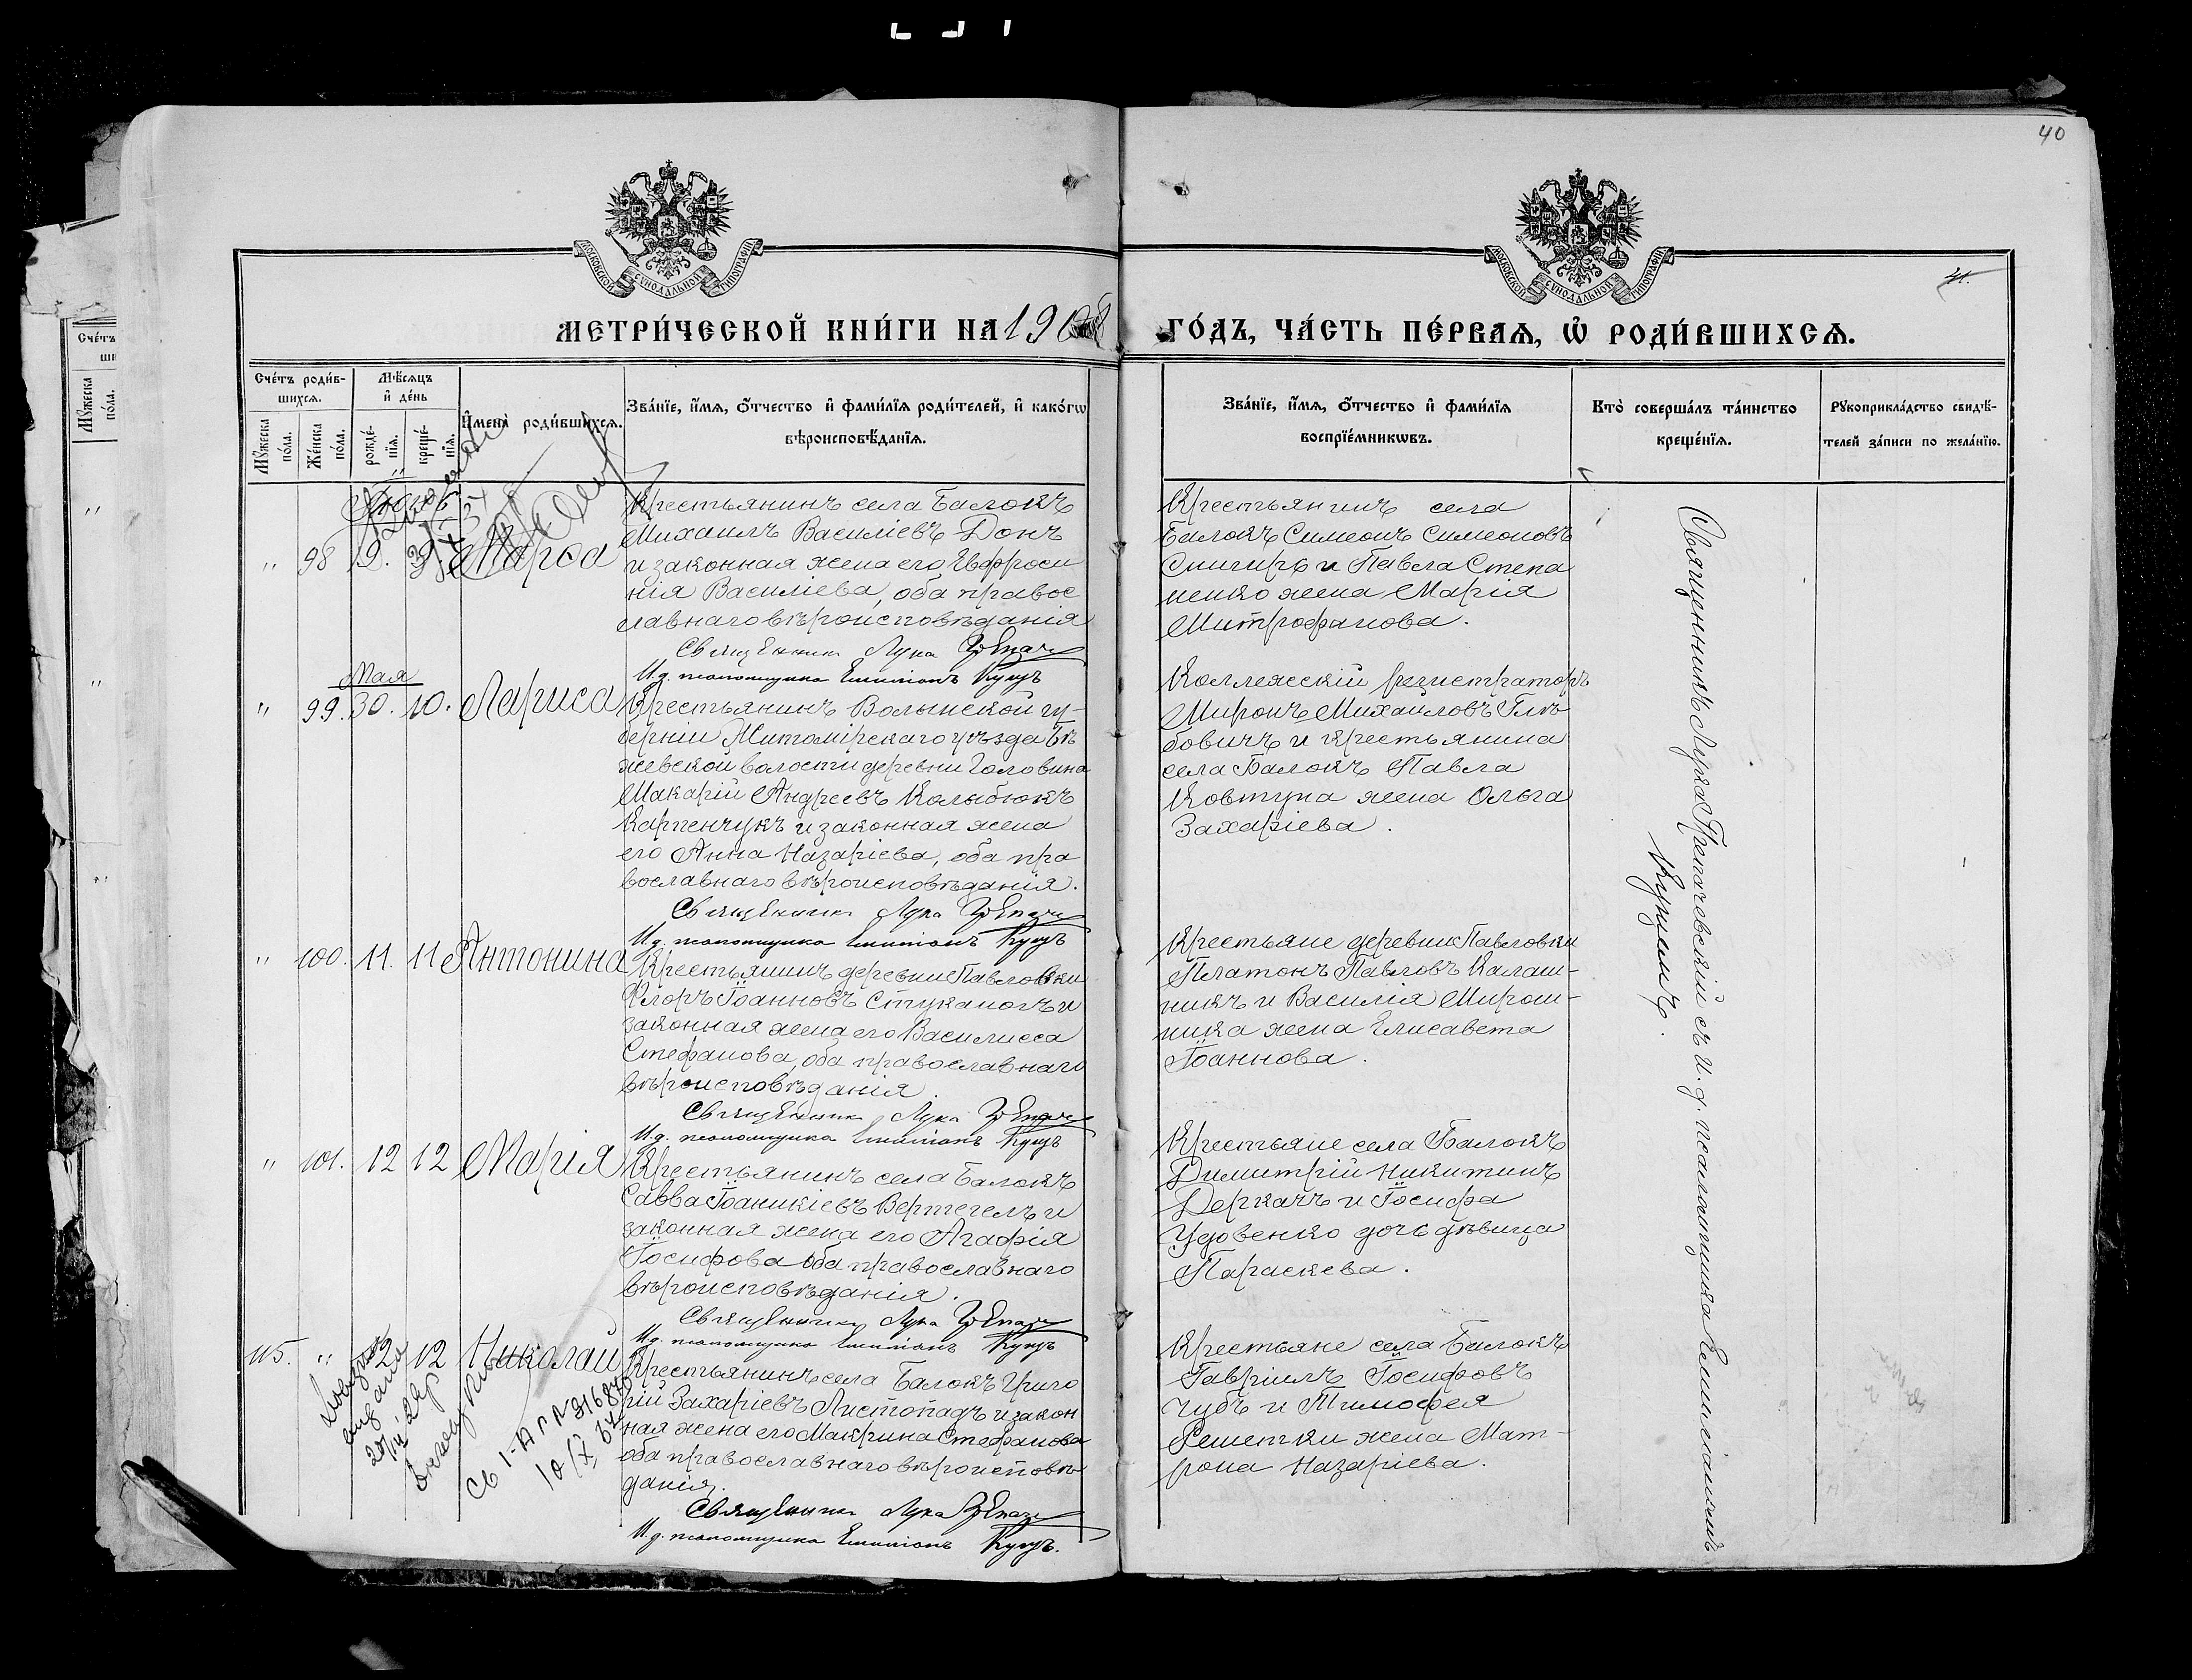 40
МОСКОВСКОЙ СѴНОДАЛЬНОЙ ТИПОГРАФІИ
МОСКОВСКОЙ СѴНОДАЛЬНОЙ ТИПОГРАФІИ
МЕТРИ́ЧЕСКОЙ КНИ́ГИ НА 190
ГО́ДЪ, ЧА́СТЬ ПЕ́РВАѦ, Ѡ҆ РОДИ́ВШИХСѦ.
Сче́тъ роди́в-
шихсѧ.
Мꙋ́жеска по́ла.
Же́нска по́ла.
Мѣ́сѧцъ
и҆ де́нь
рожде́-
нїѧ.
креще́-
нїѧ.
И҆мена̀ роди́вшихсѧ.
Зва́нїе, и҆́мѧ, ѻ҆́тчество и҆ фами́лїѧ роди́телей, и҆ како́гѡ
вѣроисповѣ́данїѧ.
Зва́нїе, и҆́мѧ, ѻ҆́тчество и҆ фами́лїѧ
воспрїе́мникѡвъ.
Кто̀ соверша́лъ та́инство
креще́нїѧ.
Рꙋкоприкла́дство свидѣ́-
телей за́писи по жела́нїю.
" 98 9. 9. Марѳа
Крестьянинъ села Балокъ
Михаилъ Василіевъ Донъ
и законная жена его Евфроси
нія Василіева, оба правос
лавнаго вѣроисповѣданія
Священникъ Лука
И.д. псаломщика Емиліанъ Куцъ
Крестьянинъ села
Балокъ Симеонъ Симеоновъ
Снигирь и Павла Степа
ненко жена Марія
Митрофанова.
Мая
" 99. 30. 10. Лариса
Крестьянинъ Волынской гу-
берніи Житомірскаго уѣзда
жевской волости деревни Головина
Макарій Андреевъ Колыбюкъ
Карпенчукъ и законная жена
его Анна Назаріева, оба пра
вославнаго вѣроисповѣданія.
Священникъ Лука
И.д. псаломщика Емиліанъ Куцъ
Коллежскій регистраторъ
Миронъ Михаиловъ Глѣ
бовичъ и крестьянина
села Балокъ Павла
Ковтуна жена Ольга
Захаріева.
" 100. 11. 11 Антонина
Крестьянинъ деревни Павловки
Флоръ Іоанновъ Стукалолъ и
законная жена его Василисса
Стефанова, оба православнаго
вѣроисповѣданія
Священникъ Лука
И.д. псаломщика Емиліанъ Куцъ
Крестьяне деревни Павловки
Платонъ Павловъ Калаш-
никъ и Василія Мирош-
ника жена Елисавета
Іоаннова.
" 101. 12 12 Марія
Крестьянинъ села Балокъ
Савва Іоаникіевъ Вертегелъ и
законная жена его Агафія
Іосифова оба православнаго
вѣроисповѣданія.
Священникъ Лука
И.д. псаломщика Емиліанъ Куцъ
Крестьяне села Балокъ
Димитрій Никитинъ
Деркачъ и Іосифа
Удовенко дочь дѣвица
Параскева.
115. " 12 12 Николай
Крестьянинъ села Балокъ Григо
рій Захаріевъ Листопадъ и закон
ная жена его Макрина Стефанова
оба православнаго вѣроисповѣ
данія.
Священникъ Лука
И.д. псаломщика Емиліанъ Куцъ.
Крестьяне села Балокъ
Гавріилъ Іосифовъ
Чубъ и Тимофея
Решетки жена Мат-
рона Назаріева.
Священникъ Лука Трепачевскій съ И.д. псаломщика Емиліаномъ
Куцемъ.